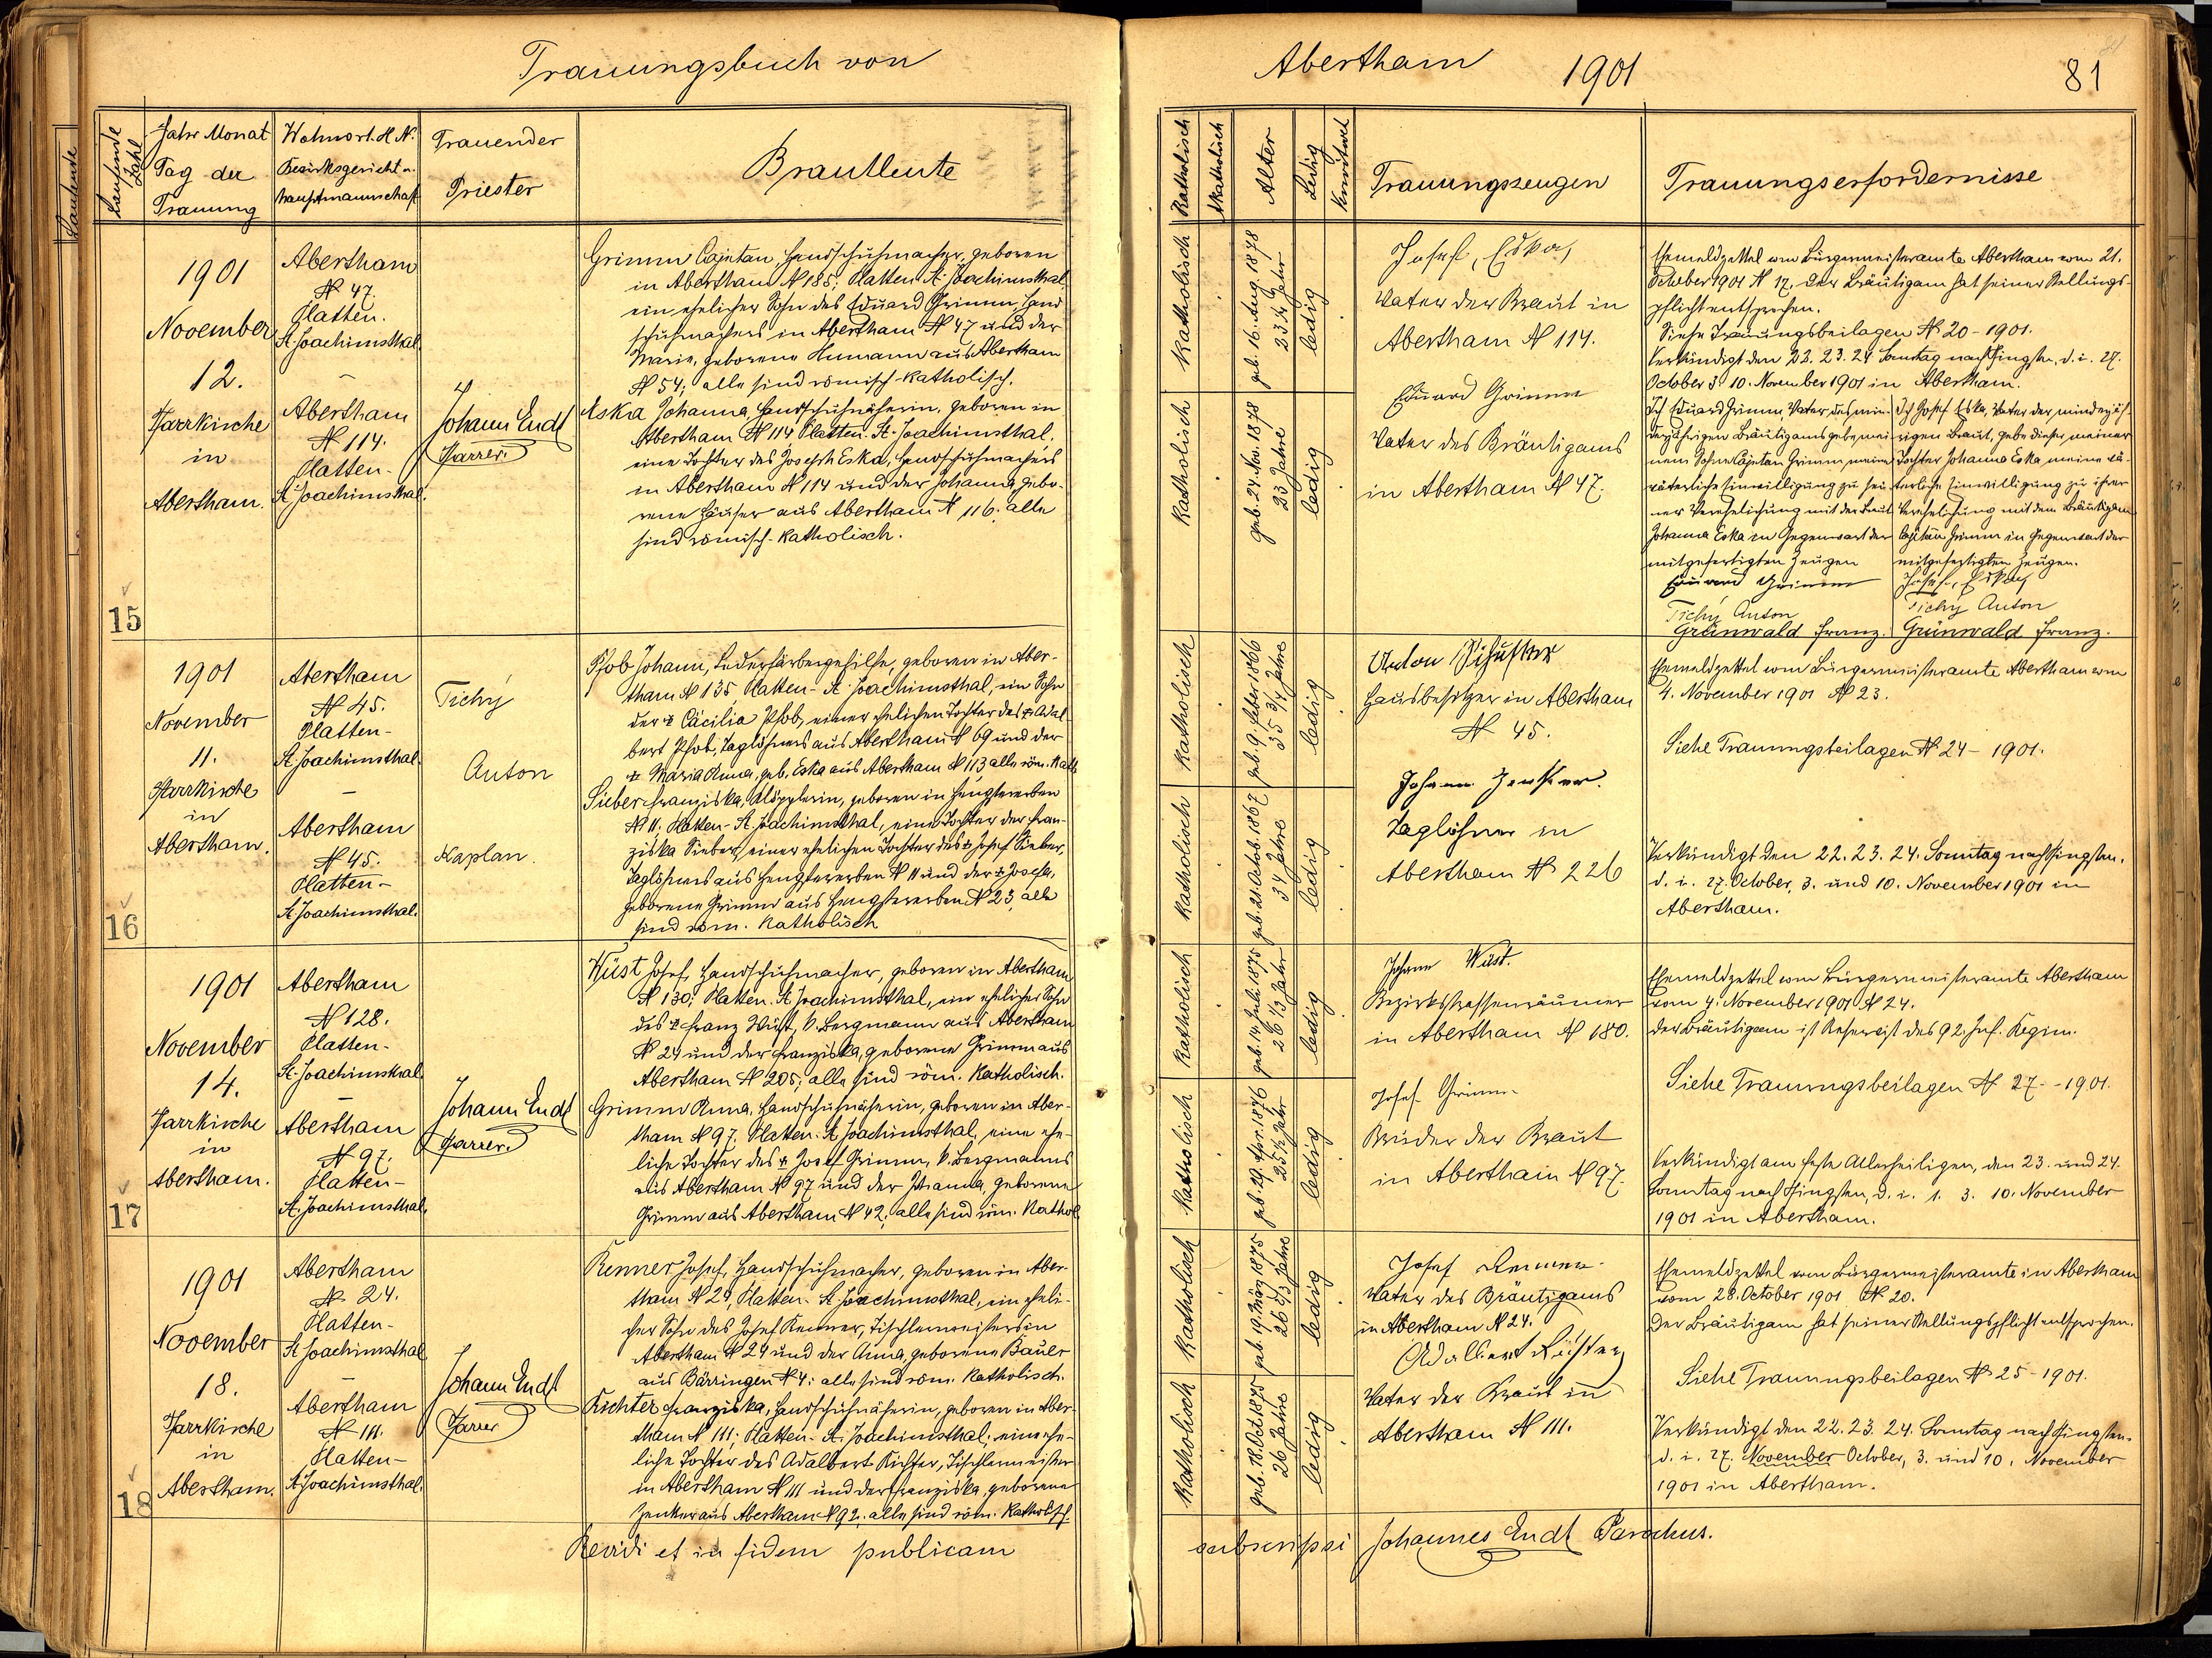 Trauungsbuch von
Abertham 1901
81
Laufende Zahl
Jahr Monat
Tag der
Trauung
Wohnort. H N.
Bezirksgericht u.
Hauptmannschaft
Trauender
Priester
Brautleute
Katholisch
Akatholisch
Alter
Ledig
Trauungszeugen
Trauungserfordernisse
15
1901
November
12.
Pfarrkirche
in
Abertham.
Abertham
N 47
Platten.
St. Joachimsthal
Abertham
N 114.
Platten-
St. Joachimsthal.
Johann Endt
Pfarrer.
Grimm Cajetan, Handschuhmacher, geboren
in Abertham N 185; Platten St. Joachimsthal
ein ehelicher Sohn des Eduard Grimm, Hand-
schuhmachers in Abertham N 47 und der
Marie, geborene Humann aus Abertham
N 54; alle sind römisch-katholisch.
Eska Johanna, Handschuhnäherin, geboren in
Abertham N 114 Platten. St. Joachimsthal.
eine Tochter des Joseph Eska, Handschuhmachers
in Abertham N 114 und der Johanna, gebo-
rene Häuser aus Abertham N 116. alle
sind römisch-katholisch.
katholisch
geb. 16. Aug. 1878
23 1/4 Jahr
ledig
katholisch
geb. 24. Nov. 1878
23 Jahre
ledig
Josef, Eska,
Vater der Braut in
Abertham N 114.
Eduard Grimm
Vater des Bräutigams
in Abertham N 47.
Ehemeldzettel vom Bürgermeisteramte Abertham vom 21.
October 1901 N 17. Der Bräutigam hat seiner Stellungs-
pflicht entsprochen.
Siehe Trauungsbeilagen N 20 - 1901.
Verkündigt den 22. 23. 24. Sonntag nach Pfingsten, d. i. 27.
October 3. 10. November 1901 in Abertham.
Ich Eduard Grimm, Vater des min-
derjährigen Bräutigams gebe mei-
nem Sohne Cajetan Grimm meine
väterliche Einwilligung zu sei-
ner Verehelichung mit der Braut
Johanna Eska in Gegenwart der
mitgefertigten Zeugen
Eduard Grimm
Tichý Anton
Grünwald Franz.
Ich Josef Eska, Vater der minderjäh-
rigen Braut, gebe dieser meiner
Tochter Johanna Eska meine vä-
terliche Einwilligung zu ihrer
Verehelichung mit dem Bräutigam
Cajetan Grimm in Gegenwart der
mitgefertigten Zeugen.
Josef, Eska,
Tichý Anton
Grünwald Franz.
16
1901
November
11.
Pfarrkirche
in
Abertham.
Abertham
N 45.
Platten-
St. Joachimsthal
Abertham
N 45.
Platten-
St. Joachimsthal.
Tichý
Anton
Kaplan.
Pfob Johann, Lederfärbergehilfe, geboren in Aber-
tham N 135 Platten- St. Joachimsthal, ein Sohn
der † Cäcilia Pfob, einer ehelichen Tochter des † Adal-
bert Pfob, Taglöhners aus Abertham N 69 und der
† Maria Anna, geb. Eska aus Abertham N 113 alle röm. Kath
Sieber Franziska, Klöpplerin, geboren in Hengstererben
N 11; Platten- St. Joachimsthal, eine Tochter der Fran-
ziska Sieber, einer ehelichen Tochter des † Josef Sieber,
Taglöhners aus Hengstererben N 11 und der † Josefa,
geborene Grimm aus Hengstererben N 23, alle
sind röm. katholisch
katholisch
geb. 9. Feber 1866
35 3/4 Jahre
ledig
katholisch
geb. 21. Octob. 1867
34 Jahre
ledig
Anton Schuster
Hausbesitzer in Abertham
N 45.
Johann Zenker.
Taglöhner in
Abertham N 226
Ehemeldzettel vom Bürgermeisteramte Abertham vom
4. November 1901 N 23.
Siehe Trauungsbeilagen N 24 - 1901.
Verkündigt den 22. 23. 24. Sonntag nach Pfingsten.
d. i. 27. October, 3. und 10. November 1901 in
Abertham.
17
1901
November
14.
Pfarrkirche
in
Abertham.
Abertham
N 128.
Platten-
St. Joachimsthal.
Abertham
N 97.
Platten-
St. Joachimsthal.
Johann Endt
Pfarrer.
Wüst Josef, Handschuhmacher, geboren in Abertham
N 130; Platten. St. Joachimsthal, ein ehelicher Sohn
des † Franz Wüst, k. Bergmann aus Abertham
N 24 und der Franziska, geborene Grimm aus
Abertham N 205; alle sind röm. katholisch.
Grimm Anna, Handschuhnäherin, geboren in Aber-
tham N 97; Platten. St. Joachimsthal, eine ehe-
liche Tochter des † Josef Grimm, k. Bergmanns
aus Abertham N 97 und der Johanna, geborene
Grimm aus Abertham N 42; alle sind röm. Kathol
katholisch
geb. 14. Juli 1875
26 1/3 Jahr
ledig
katholisch
geb. 29. Apr. 1876
25 1/2 Jahr
ledig
Johann Wüst.
Bezirksstrassenräumer
in Abertham N 180.
Josef Grimm
Bruder der Braut
in Abertham N 97.
Ehemeldzettel vom Bürgermeisteramte Abertham
vom 4. November 1901 N 24.
Der Bräutigam ist Reservist des 92. Inf. Regim.
Siehe Trauungsbeilagen N 27 - 1901.
Verkündigt am Feste Allerheiligen, den 23. und 24.
Sonntag nach Pfingsten, d. i. 1. 3. 10. November
1901 in Abertham.
18
1901
November
18.
Pfarrkirche
in
Abertham.
Abertham
N 24.
Platten-
St. Joachimsthal
Abertham
N 111.
Platten-
St. Joachimsthal.
Johann Endt
Pfarrer
Renner Josef, Handschuhmacher, geboren in Aber-
tham N 24, Platten- St. Joachimsthal, ein eheli-
cher Sohn des Josef Renner, Tischlermeisters in
Abertham N 24 und der Anna, geborene Bauer
aus Bärringen N 4; alle sind röm. katholisch.
Richter Franziska, Handschuhnäherin, geboren in Aber-
tham N 111; Platten- St. Joachimsthal; eine ehe-
liche Tochter des Adalbert Richter, Tischlermeister
in Abertham N 111 und der Franziska, geborene
Zenker aus Abertham N 92. alle sind röm. katholisch.
katholisch
geb. 19. März 1875
26 2/3 Jahre
ledig
katholisch
geb. 18. Oct. 1875
26 Jahre
ledig
Josef Renner
Vater des Bräutigams
in Abertham N 24.
Adalbert Richter
Vater der Braut in
Abertham N 111.
Ehemeldzettel vom Bürgermeisteramte in Abertham
vom 28. October 1901 N 20.
Der Bräutigam hat seiner Stellungspflicht entsprochen.
Siehe Trauungsbeilagen N 25 - 1901.
Verkündigt den 22. 23. 24. Sonntag nach Pfingsten.
d. i. 27. November October, 3. und 10. November
1901 in Abertham.
Revidi et in fidem publicam
subscripsi Johannes Endt Parochus.